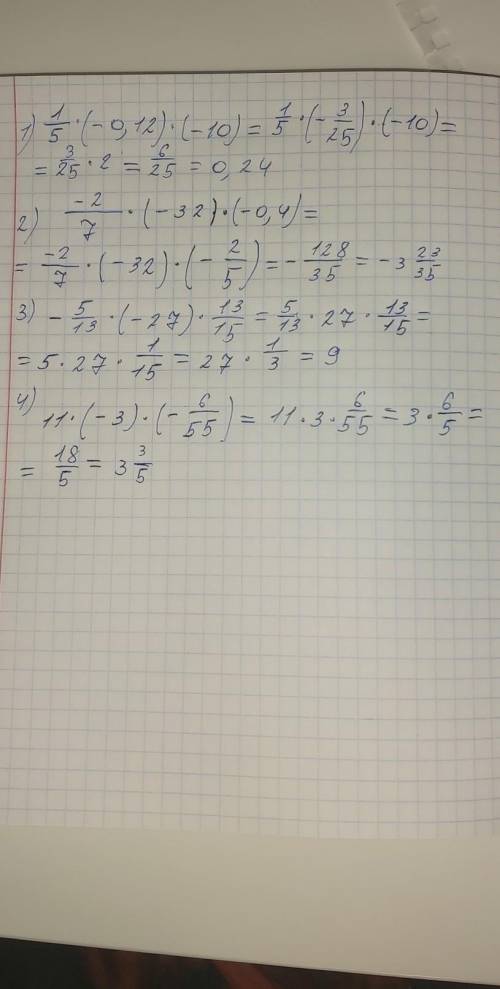 1) 1/5 · (-0,12) · (-10) = 1/5 · (-3/25) · (-10) =
= 3/25 · 2 = 6/25 = 0,24
2) -2/7 · (-32) · (-0,4) =
= -2/7 · (-32) · (-2/5) = -128/35 = -3 23/35
3) -5/13 · (-27) · 13/15 = 5/13 · 27 · 13/15 =
= 5 · 27 · 1/15 = 27 · 1/3 = 9
4) 11 · (-3) · (-6/55) = 11 · 3 · 6/55 = 3 · 6/5 =
= 18/5 = 3 3/5